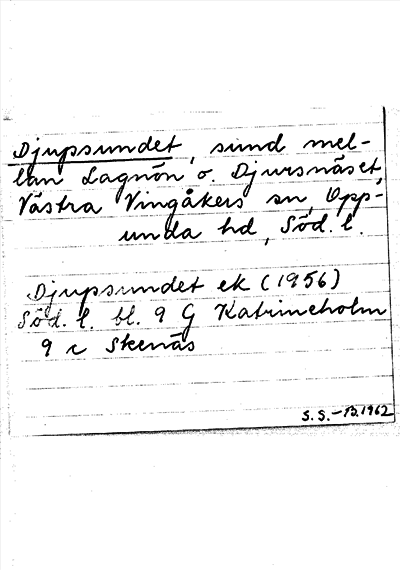 Djupsundet, sund mel-
lan Lagnön o. Djursnäset,
Västra Vingåkers sn, Opp-
unda hd, Söd. l.
Djupsundet ek (1956)
Söd. l. bl. 9 G Katrineholm
9 c Skenäs
S.S.-B.1962